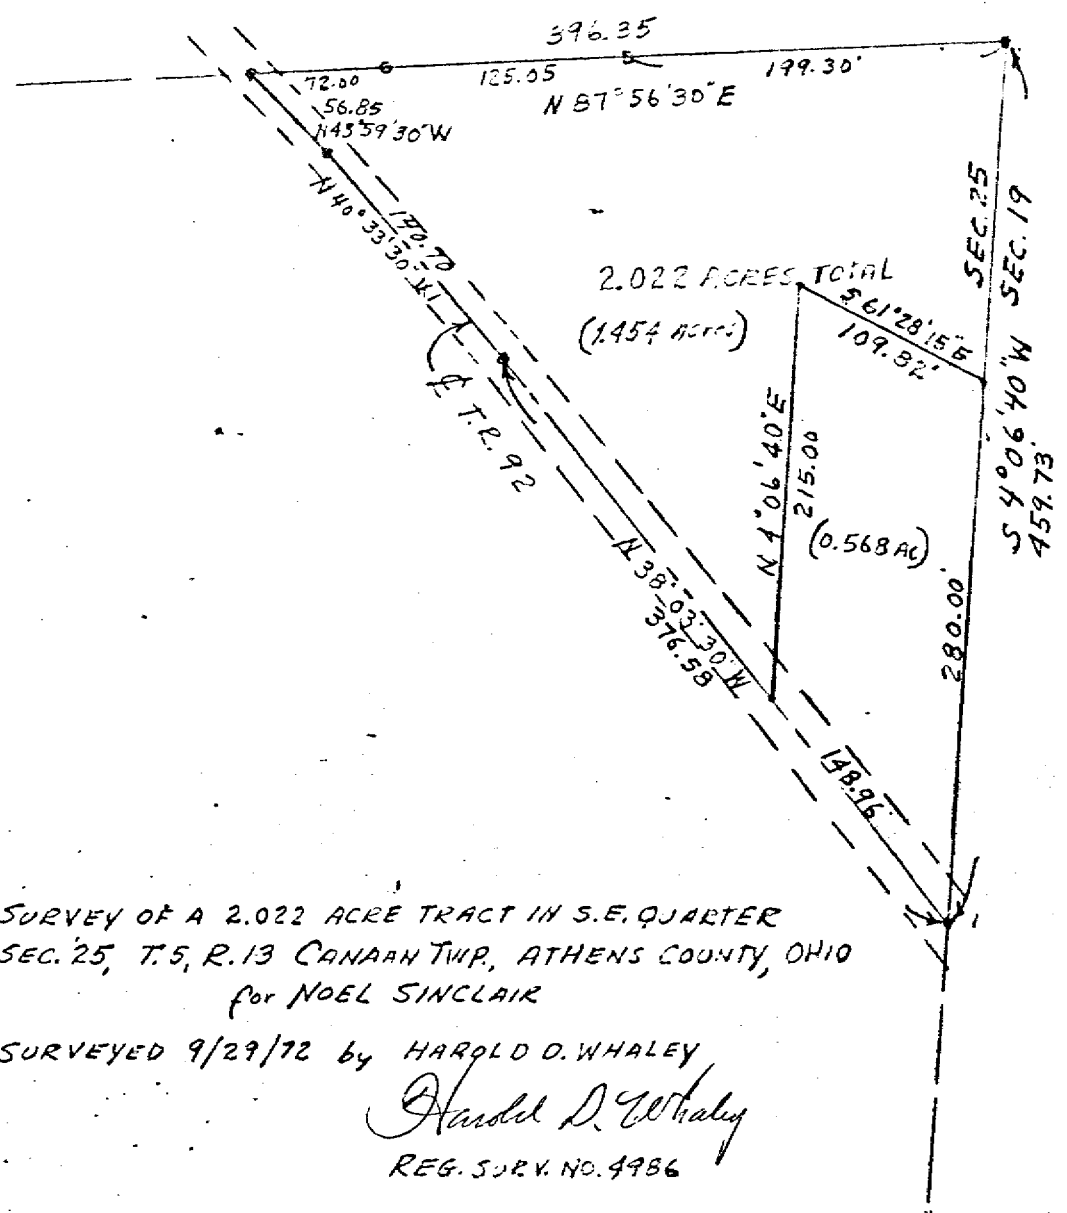 396.35
72.00
125.05
199.30'
N 87°56'30"E
56.85
N43°59'30"W
N 40°33'30" W
140.70
SEC. 25
SEC. 19
2.022 ACRES TOTAL
(1.454 Acres)
S 61°28'15"E
109.82'
S 4°06'40"W
459.73'
₵ T.R. 92
N 4°06'40"E
215.00
(0.568 Ac)
280.00'
N 38°03'30"W
376.58
148.96
SURVEY OF A 2.022 ACRE TRACT IN S.E. QUARTER
SEC. 25, T.5, R.13 CANAAN TWP., ATHENS COUNTY, OHIO
for NOEL SINCLAIR
SURVEYED 9/29/72 by HAROLD D. WHALEY
Harold D. Whaley
REG. SURV. NO. 4986